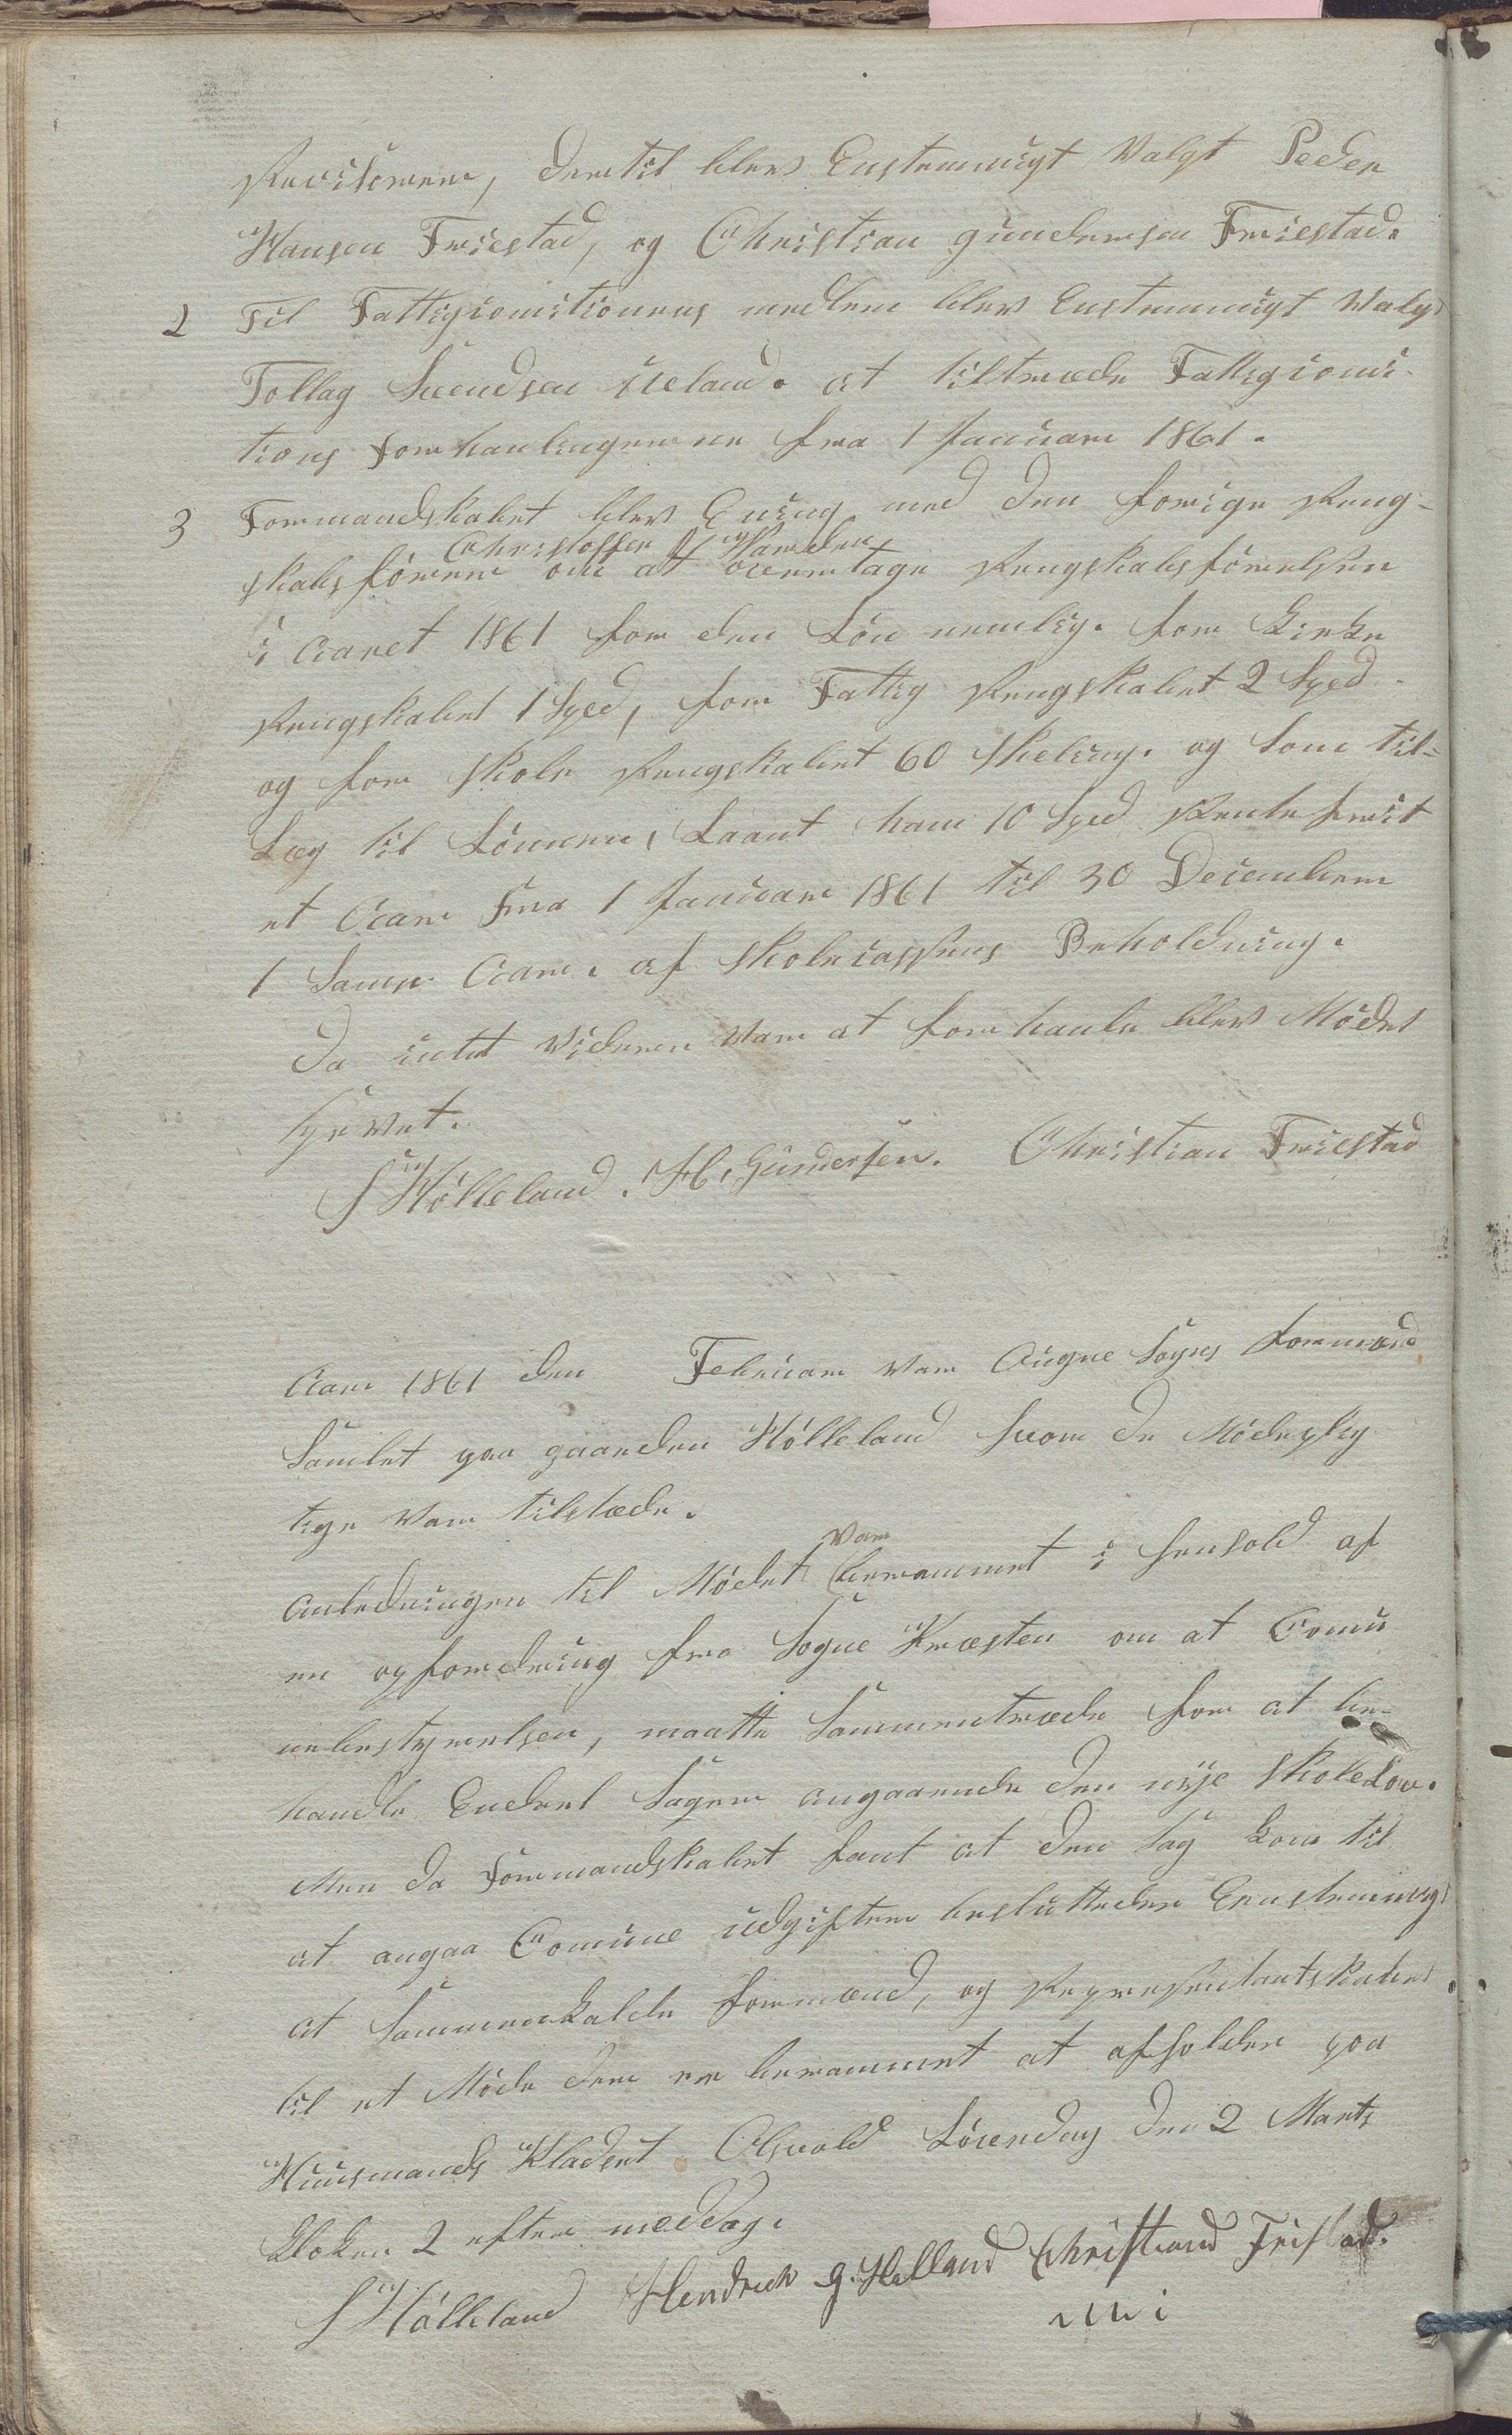 Revisorer, dertil blev Enstemmigt Valgt Peder
Hansen Friestad, og Christian gundersen Friestad.
2 Til Fattigcomitionens medlem blev Enstemmigt Valgt
Tollag Svendsen Ueland. at tiltræde Fattigcomi-
tions Forhanlingerne fra 1 Januar 1861.
3 Formandskabet blev Ening med den forrige Reng-
Christoffer H Varden
skabsfører om at overtage Rengskabsførelsen
i Aaret 1861 for den Løn nemlig. for Kirke
Rengskabet 1 Spd, for Fattig Rengskabet 2 Spd.
og for Skole Rengskabet 60 Skeling. og Som til-
Læg til Lønnen, Laant ham 10 Spd Rentefrit
et Aar Fra 1 Januar 1861 til 30 December
1 Samme Aar. af Skolecassens Beholdning.
Da intet Videre Var at forhanle blev Mødet
hævet.
S Hölleland. H. Gundersen. Christian Friestad
Aar 1861 den Februar Var Augne Sogns Formænd
Samlet paa gaarden Hölleland hvor de Mødeplig
tige Var tilstæde.
Var
Anledningen til Mødet berammet i henhold af
en opfordring fra Sogne Præsten om at Comu
nebestyrelsen, maatte Sammentræde for at be-
handle Endeel Sager angaaende den nye Skolelov.
Men da Formandskabet fant at den Sag kom til
at angaa Comune udgifter besluttedes Eenstemmigt
at Sammenkalde Formænd, og Representantskabet
til et Møde der er berammet at afholdes paa
Huusmands Pladset Osvold Løverdag den 2 Marts
Kloken 2 efter meddag.
S Hölleland Hendrich G. Helland Christiand Fristad.